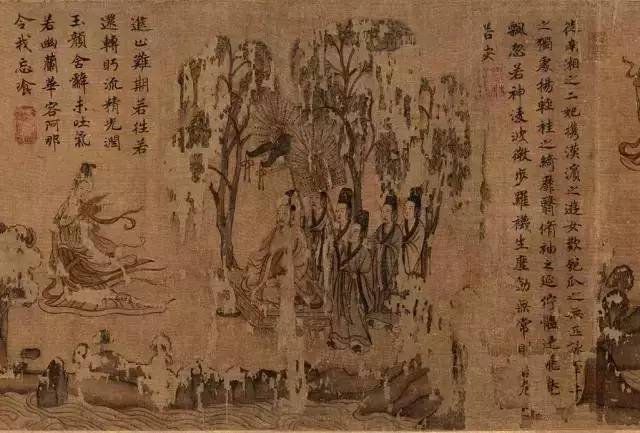 從南湘之二妃攜漢濱之遊女歎匏瓜之無匹詠
之獨處揚輕袿之綺靡翳脩袖之延佇體迅飛鳧
飄忽若神淩波微步羅襪生塵動無常則
若安
進止難期若往若
還轉眄流精光潤
玉顏含辭未吐氣
若幽蘭華容阿那
令我忘飡